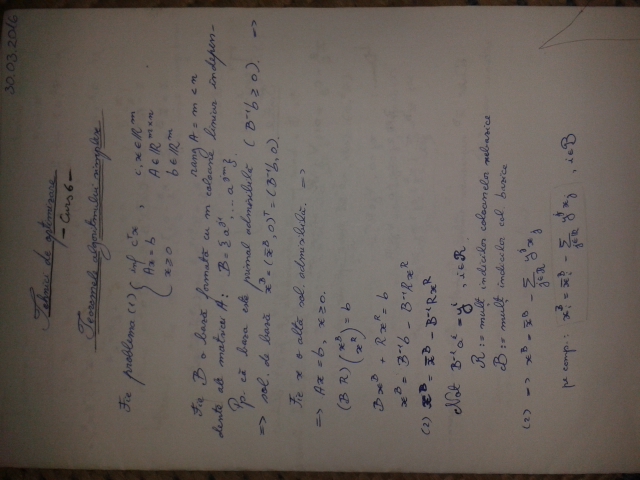 30.03.2016
Tehnici de optimizare
- Curs 6 -
Teoremele algoritmului simplex
Fie problema (1) { inf cᵀx , c, x ∈ ℝⁿ
Ax = b A ∈ ℝᵐˣⁿ
x ≥ 0 b ∈ ℝᵐ
rang A = m < n
Fie B o bază formată cu m coloane liniar indepen-
dente ale matricei A: B = {aˢ¹, ... aˢᵐ}.
Pp. că baza este primal admisibilă (B⁻¹b ≥ 0). =>
=> sol. de bază x̄ᴮ = (x̄ᴮ, 0)ᵀ = (B⁻¹b, 0).
Fie x o altă sol admisibilă =>
=> Ax = b, x ≥ 0.
(B R) (xᴮ xᴿ) = b
Bxᴮ + Rxᴿ = b
xᴮ = B⁻¹b - B⁻¹Rxᴿ
(2) xᴮ = x̄ᴮ - B⁻¹Rxᴿ
Not B⁻¹aⁱ = yⁱ, i ∈ R.
R := mult indicilor coloanelor nebazice
B := mult indicilor col bazice
(2) => xᴮ = x̄ᴮ - Σ j∈R yʲxⱼ
pe comp: xᴮᵢ = x̄ᴮᵢ - Σ j∈R yʲᵢxⱼ , i ∈ B